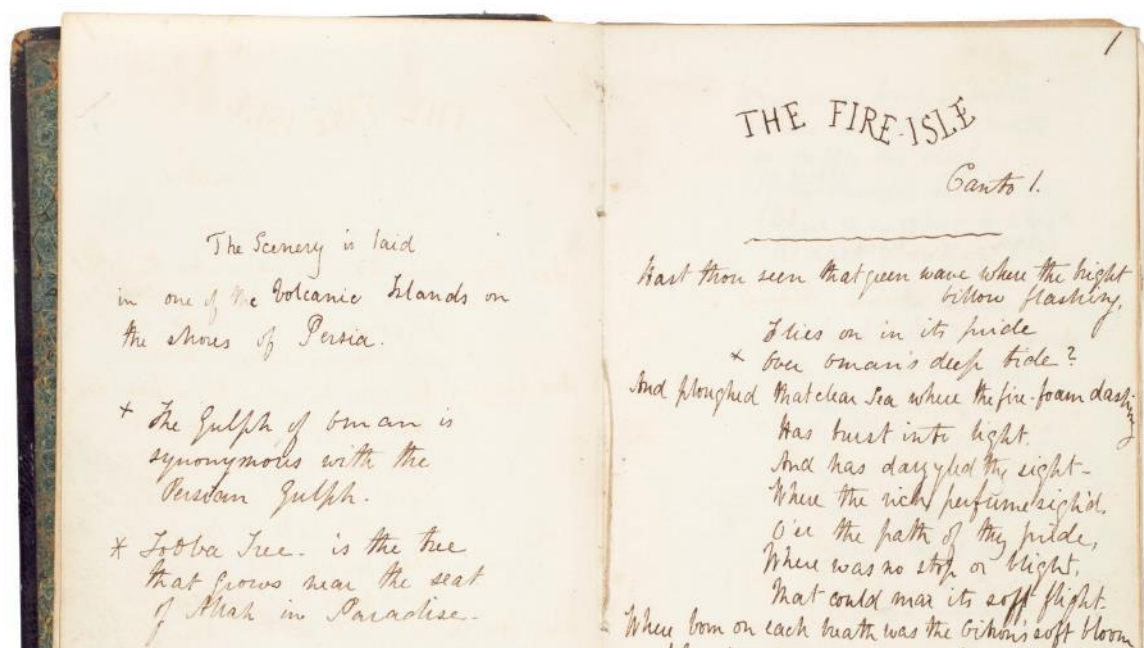 The Scenery is laid
in one of the Volcanic Islands on
the shores of Persia.
+ The Gulph of Oman is
synonymous with the
Persian Gulph.
× Tooba Tree - is the tree
that grows near the seat
of Allah in Paradise -
1
THE FIRE-ISLE
Canto 1.
Hast thou seen that green wave where the bright
billow flashing,
Flies on in its pride
× Over Oman's deep tide?
And ploughed that clear Sea where the fire-foam dashing
Has burst into light.
And has dazzled thy sight -
Where the rich perfume sigh'd,
O'er the path of thy pride,
Where was no stop or blight,
That could mar its soft flight.
Where born on each breath was the Citron's soft bloom